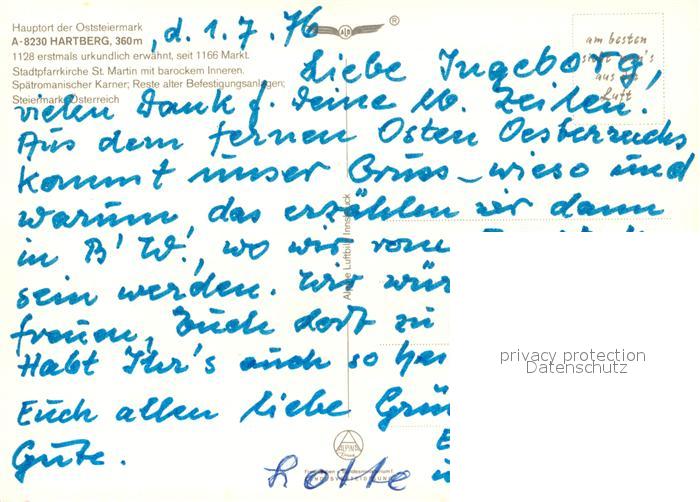 Hauptort der Oststeiermark
A-8230 HARTBERG, 360m
1128 erstmals urkundlich erwähnt, seit 1166 Markt.
Stadtpfarrkirche St. Martin mit barockem Inneren.
Spätromanischer Karner; Reste alter Befestigungsanlagen;
Steiermark, Österreich
, d. 1. 7. 76
®
am besten
aus der
Luft
Liebe Ingeborg,
vielen Dank f. Deine lb. Zeilen.
Aus dem fernen Osten Oesterreichs
kommt unser Gruss – wieso und
warum, das erzählen wir dann
in B' W., wo wir vom
sein werden. Wir wür
freuen, Euch dort zu
Habt Ihr's auch so hei
Euch allen liebe Grüs
Gute.
Lotte
Alpine Luftbild Innsbruck
ALPINE
privacy protection
Datenschutz